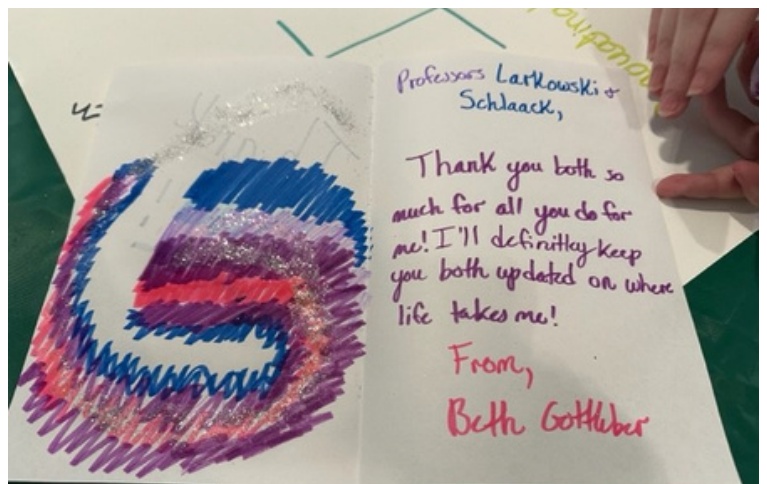 Professors Larkowski &
Schlaack,
Thank you both so
much for all you do for
me! I'll definitley keep
you both updated on where
life takes me!
From,
Beth Gottleber